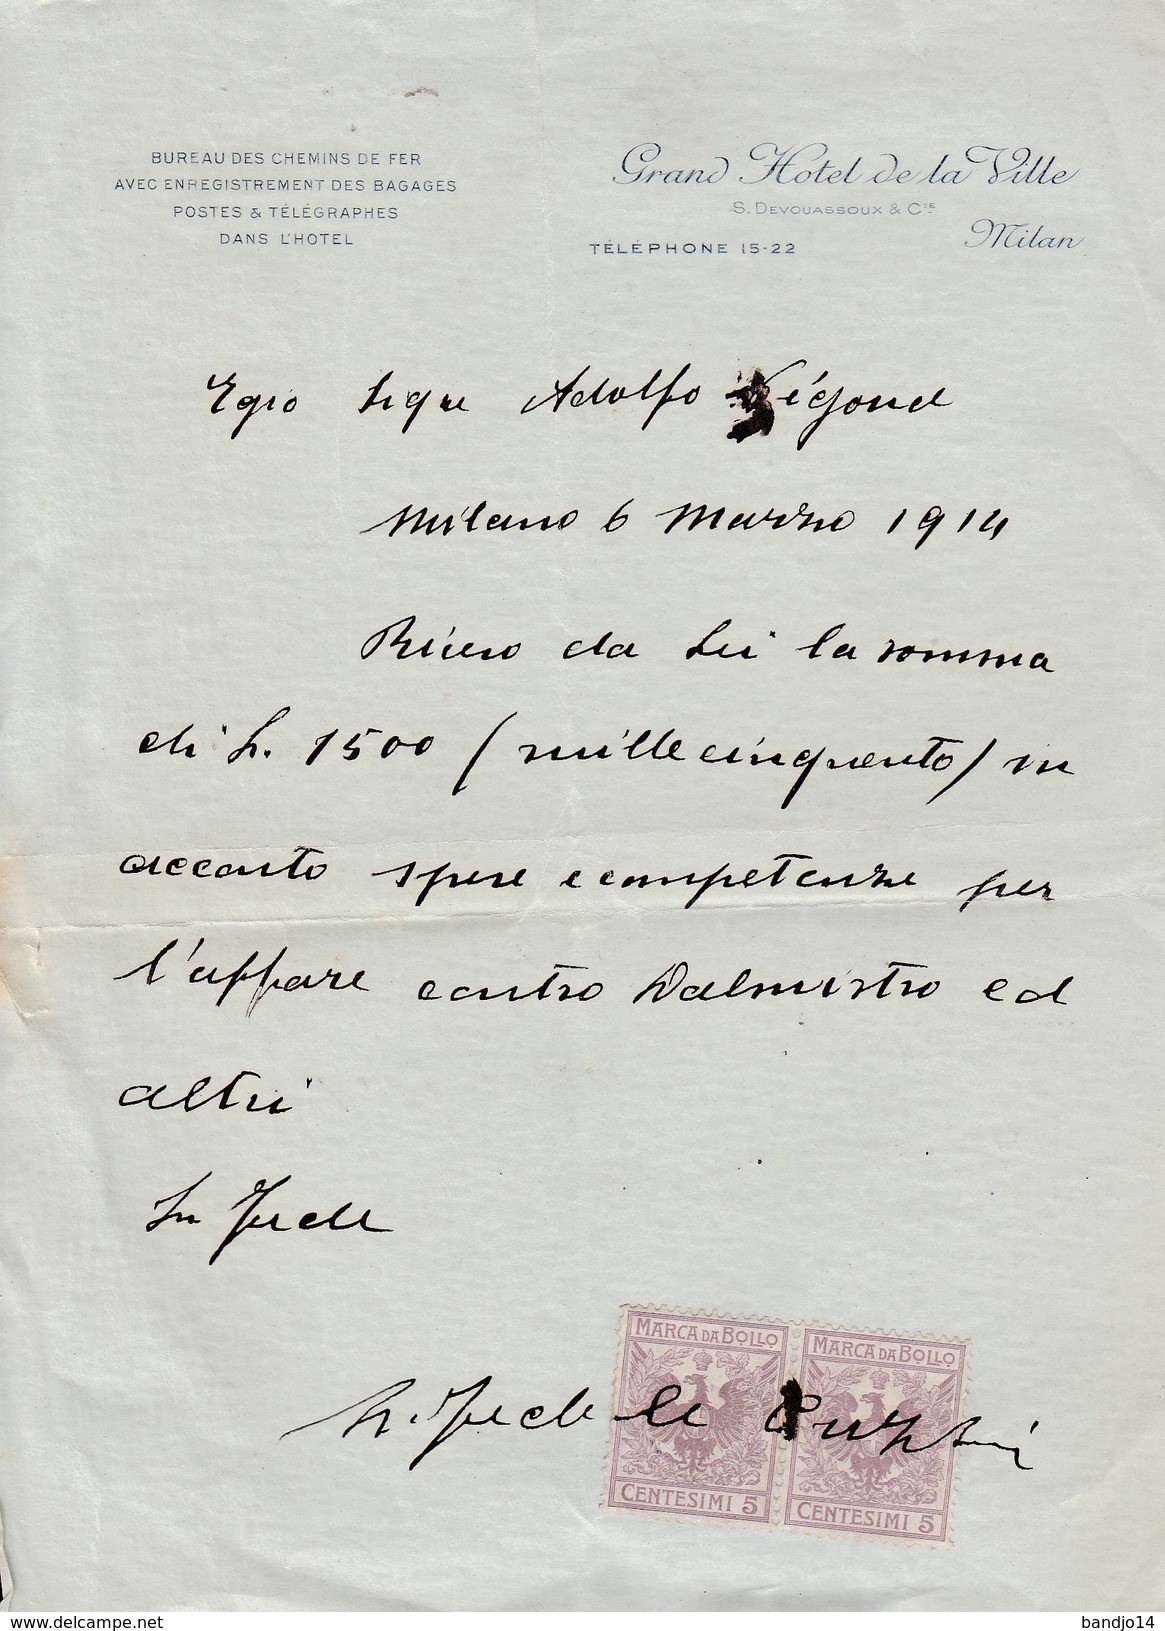 BUREAU DES CHEMINS DE FER
AVEC ENREGISTREMENT DES BAGAGES
POSTES & TÉLÉGRAPHES
DANS L'HOTEL
Grand Hotel de la Ville
S. DEVOUASSOUX & CIE
TÉLÉPHONE 15-22
Milan
Egio Sigre Adolfo Pégoud
Milano 6 Marzo 1914
Ricevo da Lei la somma
di L. 1500 (millecinquento) in
acconto spese e competenze per
l'affare contro Dalmistro ed
altri
In fede
MARCA DA BOLLO
MARCA DA BOLLO
CENTESIMI 5
CENTESIMI 5
delcampe.net
bandjo14